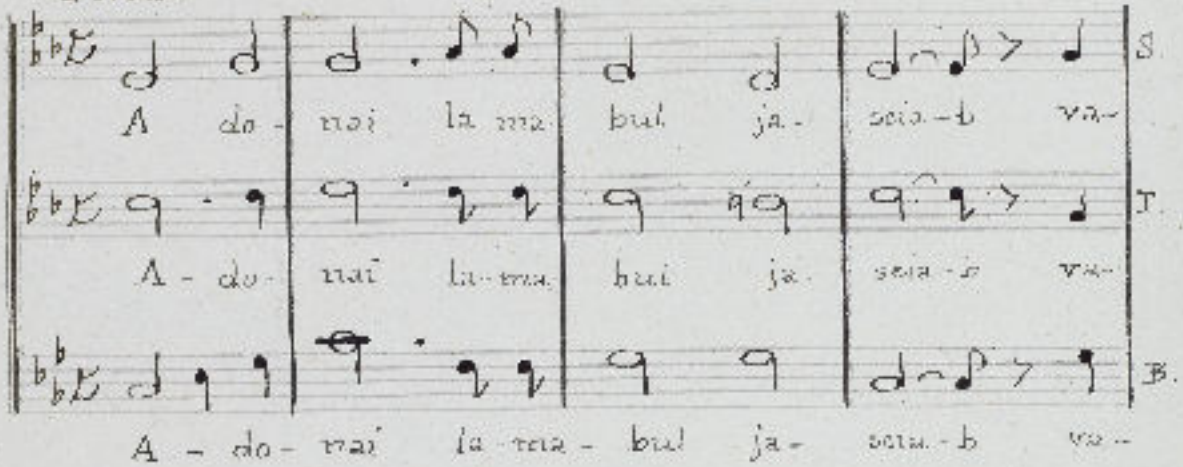 S.
A do- nai la ma bul ja- scia-b va-
T.
A - do- nai la-ma bul ja- scia-b va-
B.
A - do- nai la-ma- bul ja- scia-b va-